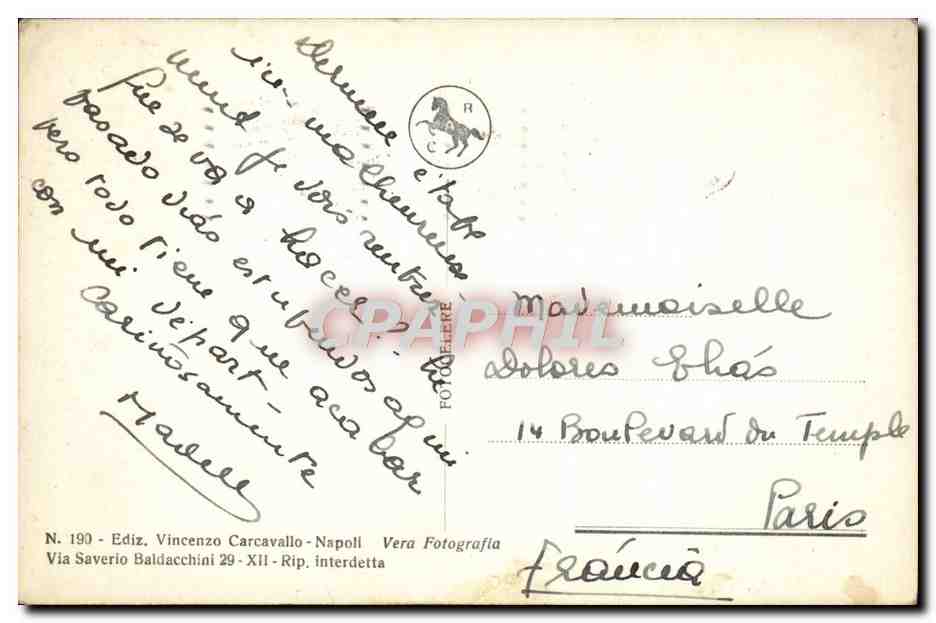 Derniere étape
malheureuse
ment je vois rentrer
que se va a hacer?..
pasado días estupendos aquí
pero todo tiene que acabar
con mi départ-
cariñosamente
R
C
FOTOCELERE
CPAPHIL
Mademoiselle
Dolores Eliás
14 Boulevard du Temple
Paris
Fráncia
N. 190 - Ediz. Vincenzo Carcavallo - Napoli Vera Fotografia
Via Saverio Baldacchini 29 - XII - Rip. interdetta